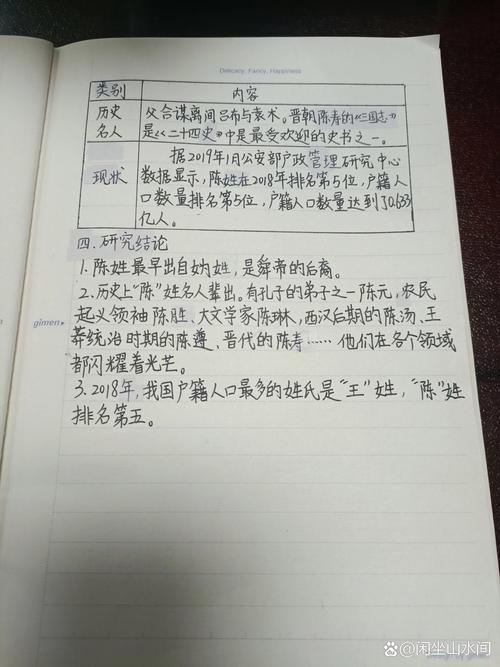 Delicacy, Fancy, Happiness
类别 内容
历史名人 父合谋离间吕布与袁术。晋朝陈寿的《三国志》
是《二十四史》中是最受欢迎的史书之一。
现状 据2019年1月公安部户政管理研究中心
数据显示，陈姓在2018年排名第5位，户籍人
口数量排名第5位，户籍人口数量达到了0.633
亿人。
四.研究结论
1.陈姓最早出自妫姓，是舜帝的后裔。
2.历史上“陈”姓名人辈出。有孔子的弟子之一陈元，农民
起义领袖陈胜、大文学家陈琳，西汉后期的陈汤、王
莽统治时期的陈遵、晋代的陈寿……他们在各个领域
都闪耀着光芒。
3.2018年，我国户籍人口最多的姓氏是“王”姓，“陈”姓
排名第五。
gimen
@闲坐山水间